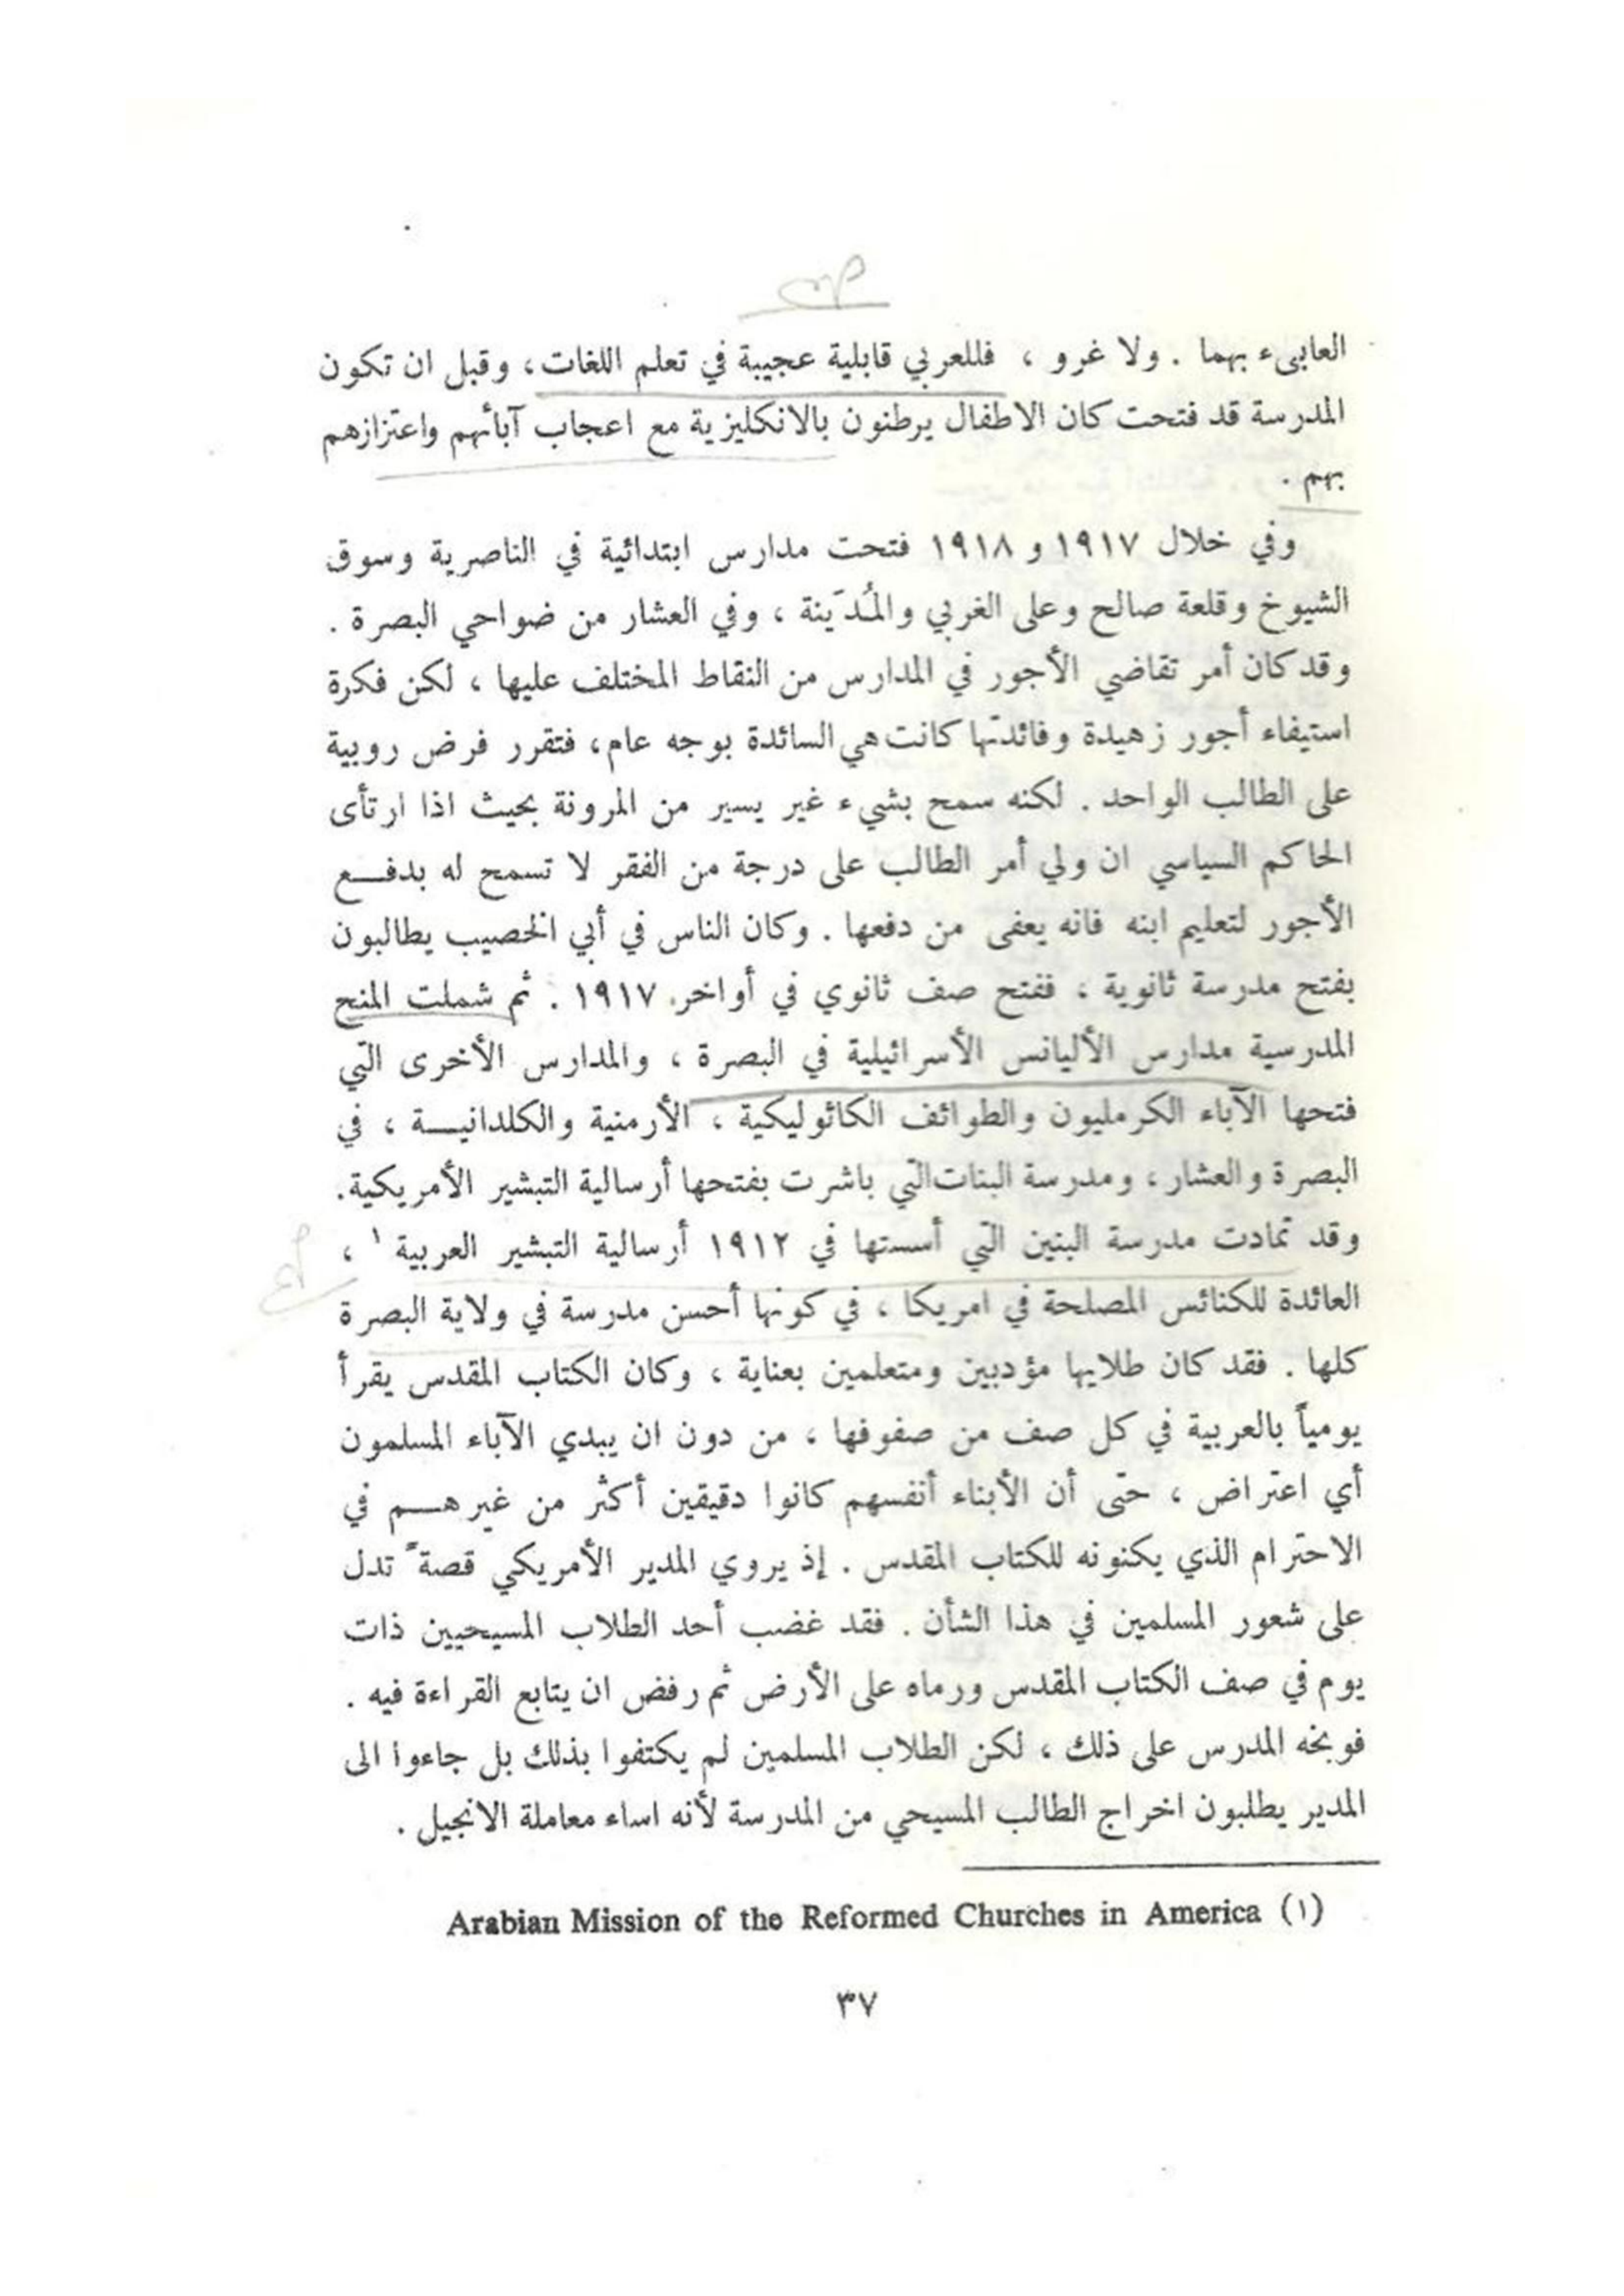 العابىء بهما . ولا غرو ، فللعربي قابلية عجيبة في تعلم اللغات ، وقبل ان تكون
المدرسة قد فتحت كان الاطفال يرطنون بالانكليزية مع اعجاب آبائهم واعتزازهم
بهم .
وفي خلال ١٩١٧ و ١٩١٨ فتحت مدارس ابتدائية في الناصرية وسوق
الشيوخ وقلعة صالح وعلى الغربي والمُدَيّنة ، وفي العشار من ضواحي البصرة .
وقد كان أمر تقاضي الأجور في المدارس من النقاط المختلف عليها ، لكن فكرة
استيفاء أجور زهيدة وفائدتها كانت هي السائدة بوجه عام ، فتقرر فرض روبية
على الطالب الواحد . لكنه سمح بشيء غير يسير من المرونة بحيث اذا ارتأى
الحاكم السياسي ان ولي أمر الطالب على درجة من الفقر لا تسمح له بدفـــع
الأجور لتعليم ابنه فانه يعفى من دفعها . وكان الناس في أبي الخصيب يطالبون
بفتح مدرسة ثانوية ، ففتح صف ثانوي في أواخر ١٩١٧ . ثم شملت المنح
المدرسية مدارس الأليانس الأسرائيلية في البصرة ، والمدارس الأخرى التي
فتحها الآباء الكرمليون والطوائف الكاثوليكية ، الأرمنية والكلدانيـــة ، في
البصرة والعشار ، ومدرسة البنات التي باشرت بفتحها أرسالية التبشير الأمريكية .
وقد تمادت مدرسة البنين التي أسستها في ١٩١٢ أرسالية التبشير العربية ١ ،
العائدة للكنائس المصلحة في امريكا ، في كونها أحسن مدرسة في ولاية البصرة
كلها . فقد كان طلابها مؤدبين ومتعلمين بعناية ، وكان الكتاب المقدس يقرأ
يومياً بالعربية في كل صف من صفوفها ، من دون ان يبدي الآباء المسلمون
أي اعتراض ، حتى أن الأبناء أنفسهم كانوا دقيقين أكثر من غيرهـــم في
الاحترام الذي يكنونه للكتاب المقدس . إذ يروي المدير الأمريكي قصةً تدل
على شعور المسلمين في هذا الشأن . فقد غضب أحد الطلاب المسيحيين ذات
يوم في صف الكتاب المقدس ورماه على الأرض ثم رفض ان يتابع القراءة فيه .
فوبخه المدرس على ذلك ، لكن الطلاب المسلمين لم يكتفوا بذلك بل جاءوا الى
المدير يطلبون اخراج الطالب المسيحي من المدرسة لأنه اساء معاملة الانجيل .
Arabian Mission of the Reformed Churches in America (١)
٣٧